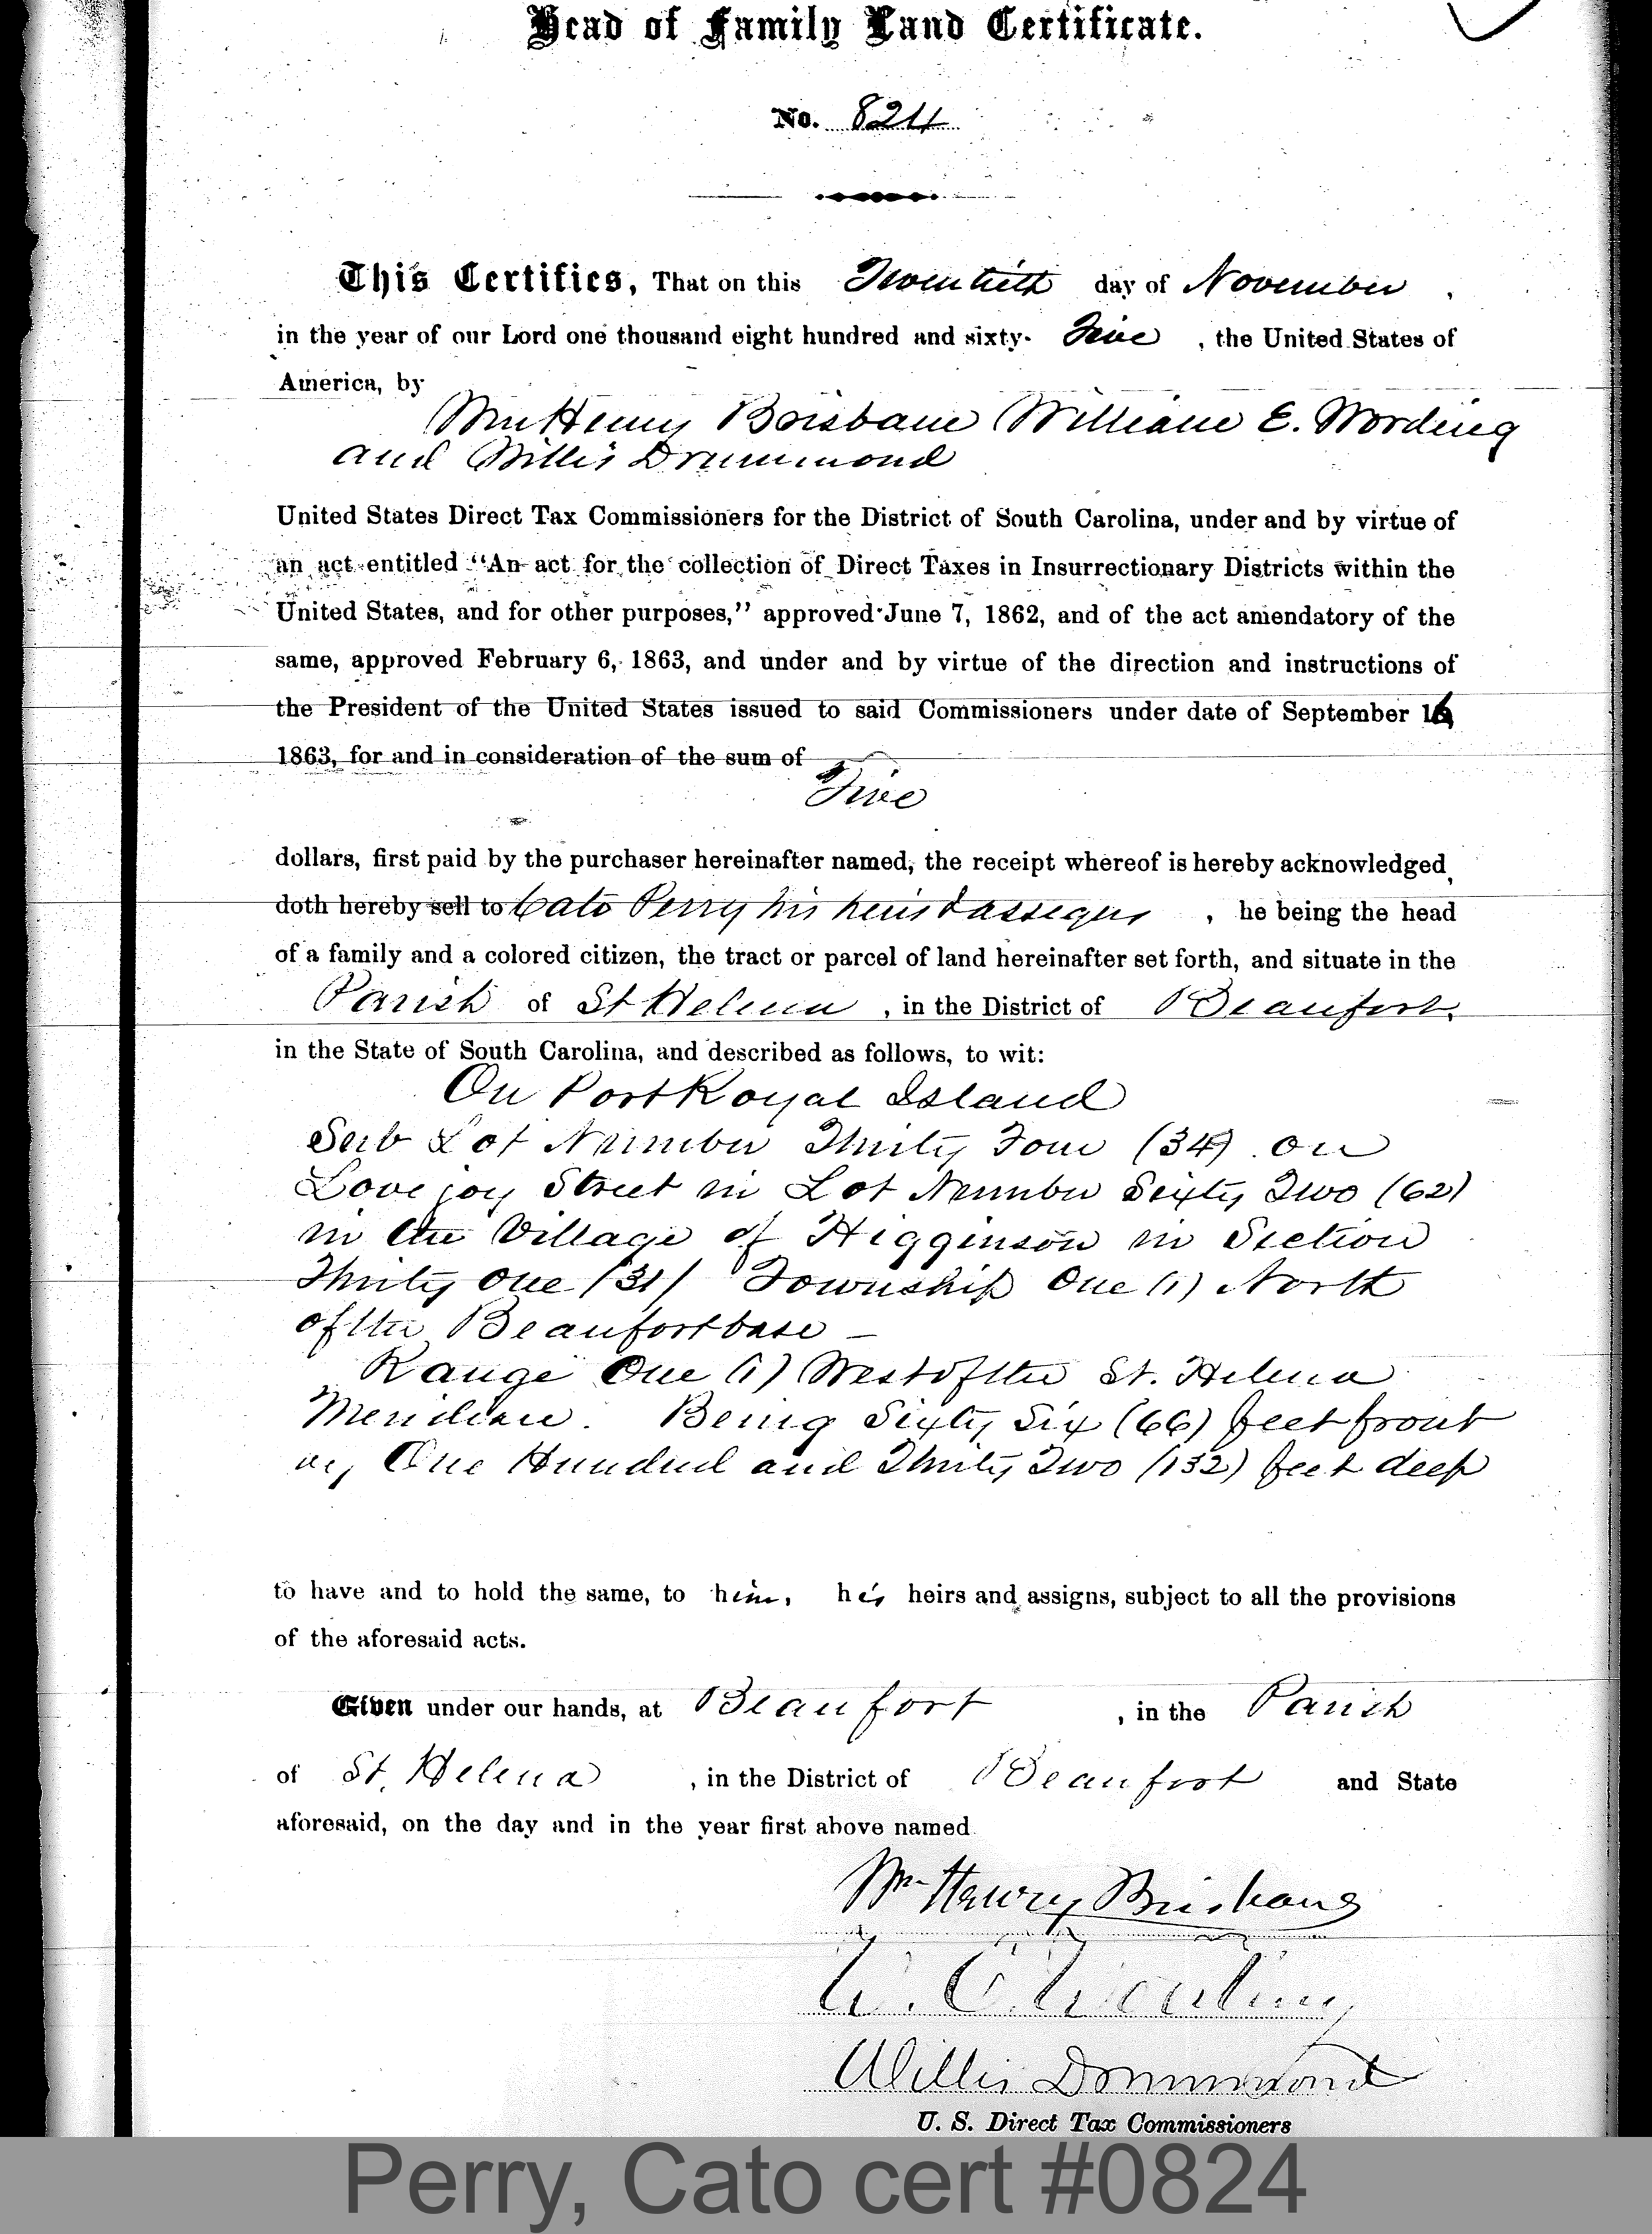 Head of Family Land Certificate.
No. 824
This Certifies, That on this Twentieth day of November,
in the year of our Lord one thousand eight hundred and sixty-Five, the United States of
America, by
Wm Henry Brisbane William E. Wording
and Willis Drummond
United States Direct Tax Commissioners for the District of South Carolina, under and by virtue of
an act entitled "An act for the collection of Direct Taxes in Insurrectionary Districts within the
United States, and for other purposes," approved June 7, 1862, and of the act amendatory of the
same, approved February 6, 1863, and under and by virtue of the direction and instructions of
the President of the United States issued to said Commissioners under date of September 16
1863, for and in consideration of the sum of
Five
dollars, first paid by the purchaser hereinafter named, the receipt whereof is hereby acknowledged,
doth hereby sell to Cato Perry his heirs & assigns, he being the head
of a family and a colored citizen, the tract or parcel of land hereinafter set forth, and situate in the
Parish of St Helena, in the District of Beaufort,
in the State of South Carolina, and described as follows, to wit:
On Port Royal Island
Sub Lot Number Thirty Four (34) on
Lovejoy Street in Lot Number Sixty Two (62)
in the Village of Higginson in Section
Thirty One (31) Township One (1) North
of the Beaufort base —
Range One (1) West of the St. Helena
Meridian. Being Sixty Six (66) feet front
by One Hundred and Thirty Two (132) feet deep
to have and to hold the same, to him, his heirs and assigns, subject to all the provisions
of the aforesaid acts.
Given under our hands, at Beaufort, in the Parish
of St. Helena, in the District of Beaufort and State
aforesaid, on the day and in the year first above named.
Wm Henry Brisbane
W. E. Wording
Willis Drummond
U. S. Direct Tax Commissioners
Perry, Cato cert #0824